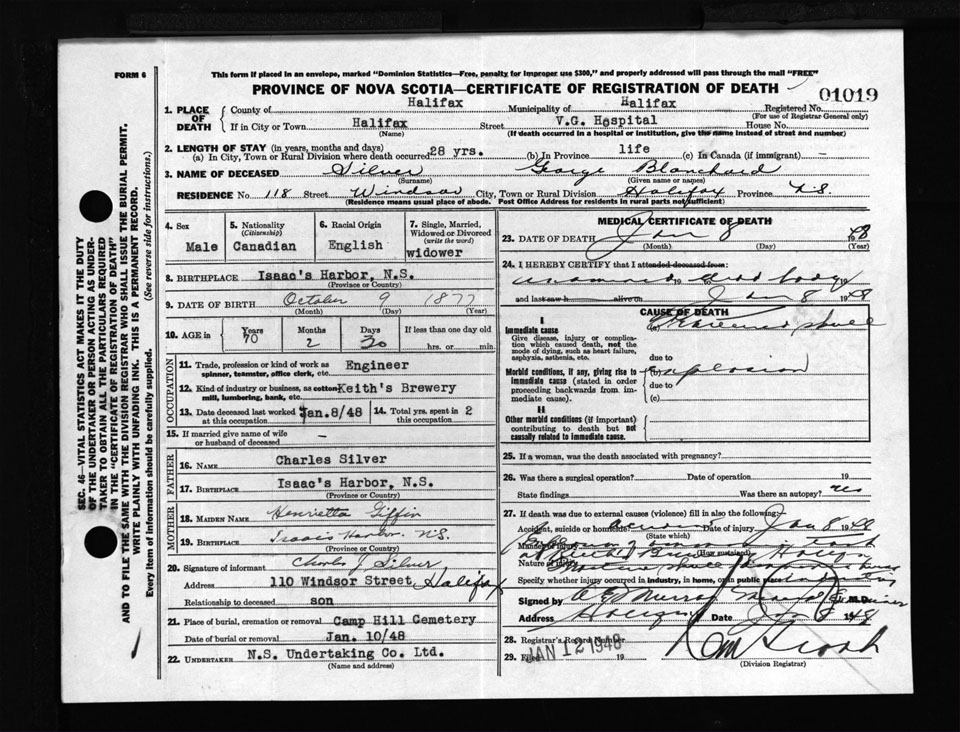 FORM 6
This form if placed in an envelope, marked "Dominion Statistics—Free, penalty for improper use $300," and properly addressed will pass through the mail "FREE"
PROVINCE OF NOVA SCOTIA—CERTIFICATE OF REGISTRATION OF DEATH
01019
1. PLACE OF DEATH
County of Halifax Municipality of Halifax Registered No.
(For use of Registrar General only)
If in City or Town Halifax Street V.G. Hospital House No.
(Name) (If death occurred in a hospital or institution, give the name instead of street and number)
2. LENGTH OF STAY (in years, months and days)
(a) In City, Town or Rural Division where death occurred 28 yrs. (b) In Province life (c) In Canada (if immigrant) -
3. NAME OF DECEASED Silver George Blanchard
(Surname) (Given name or names)
RESIDENCE No 118 Street Windsor City, Town or Rural Division Halifax Province N.S.
(Residence means usual place of abode. Post Office Address for residents in rural parts not sufficient)
4. Sex
Male
5. Nationality
(Citizenship)
Canadian
6. Racial Origin
English
7. Single, Married, Widowed or Divorced
(write the word)
widower
8. BIRTHPLACE Isaac's Harbor, N.S.
(Province or Country)
9. DATE OF BIRTH October 9 1877
(Month) (Day) (Year)
10. AGE in
Years 70
Months 2
Days 30
If less than one day old
hrs. or min.
OCCUPATION
11. Trade, profession or kind of work as Engineer
spinner, teamster, office clerk, etc.
12. Kind of industry or business, as cotton Keith's Brewery
mill, lumbering, bank, etc.
13. Date deceased last worked Jan.8/48
at this occupation
14. Total yrs. spent in 2
this occupation
15. If married give name of wife
or husband of deceased -
FATHER
16. NAME Charles Silver
17. BIRTHPLACE Isaac's Harbor, N.S.
(Province or Country)
MOTHER
18. MAIDEN NAME Henrietta Giffin
19. BIRTHPLACE Isaacs Harbor. N.S.
(Province or Country)
20. Signature of informant Charles J Silver
Address 110 Windsor Street, Halifax
Relationship to deceased son
21. Place of burial, cremation or removal Camp Hill Cemetery
Date of burial or removal Jan. 10/48
22. UNDERTAKER N.S. Undertaking Co. Ltd.
(Name and address)
MEDICAL CERTIFICATE OF DEATH
23. DATE OF DEATH Jan 8 1948
(Month) (Day) (Year)
24. I HEREBY CERTIFY that I attended deceased from:
examined dead body
and last saw h alive on Jan 8 1948
CAUSE OF DEATH
I
Immediate cause (a) Fractured skull
Give disease, injury or complication which caused death, not the mode of dying, such as heart failure, asphyxia, asthenia, etc.
due to
Morbid conditions, if any, giving rise to immediate cause (stated in order proceeding backwards from immediate cause).
explosion
due to
(c)
II
Other morbid conditions (if important) contributing to death but not causally related to immediate cause.
25. If a woman, was the death associated with pregnancy?
26. Was there a surgical operation? Date of operation 19
State findings Was there an autopsy? no
27. If death was due to external causes (violence) fill in also the following:
Accident, suicide or homicide Date of injury Jan 8 1948
(State which)
Manner of injury
(How sustained)
Nature of injury
Specify whether injury occurred in industry, in home, or in public place
Signed by Murray M.D.
Address Halifax Date Jan 1948
28. Registrar's Record Number
29. Filed JAN 12 1948 19
(Division Registrar)
SEC. 46—VITAL STATISTICS ACT MAKES IT THE DUTY
OF THE UNDERTAKER OR PERSON ACTING AS UNDER-
TAKER TO OBTAIN ALL THE PARTICULARS REQUIRED
IN THE "CERTIFICATE OF REGISTRATION OF DEATH"
AND TO FILE THE SAME WITH THE DIVISION REGISTRAR WHO SHALL ISSUE THE BURIAL PERMIT.
WRITE PLAINLY WITH UNFADING INK. THIS IS A PERMANENT RECORD.
Every item of information should be carefully supplied. (See reverse side for instructions.)